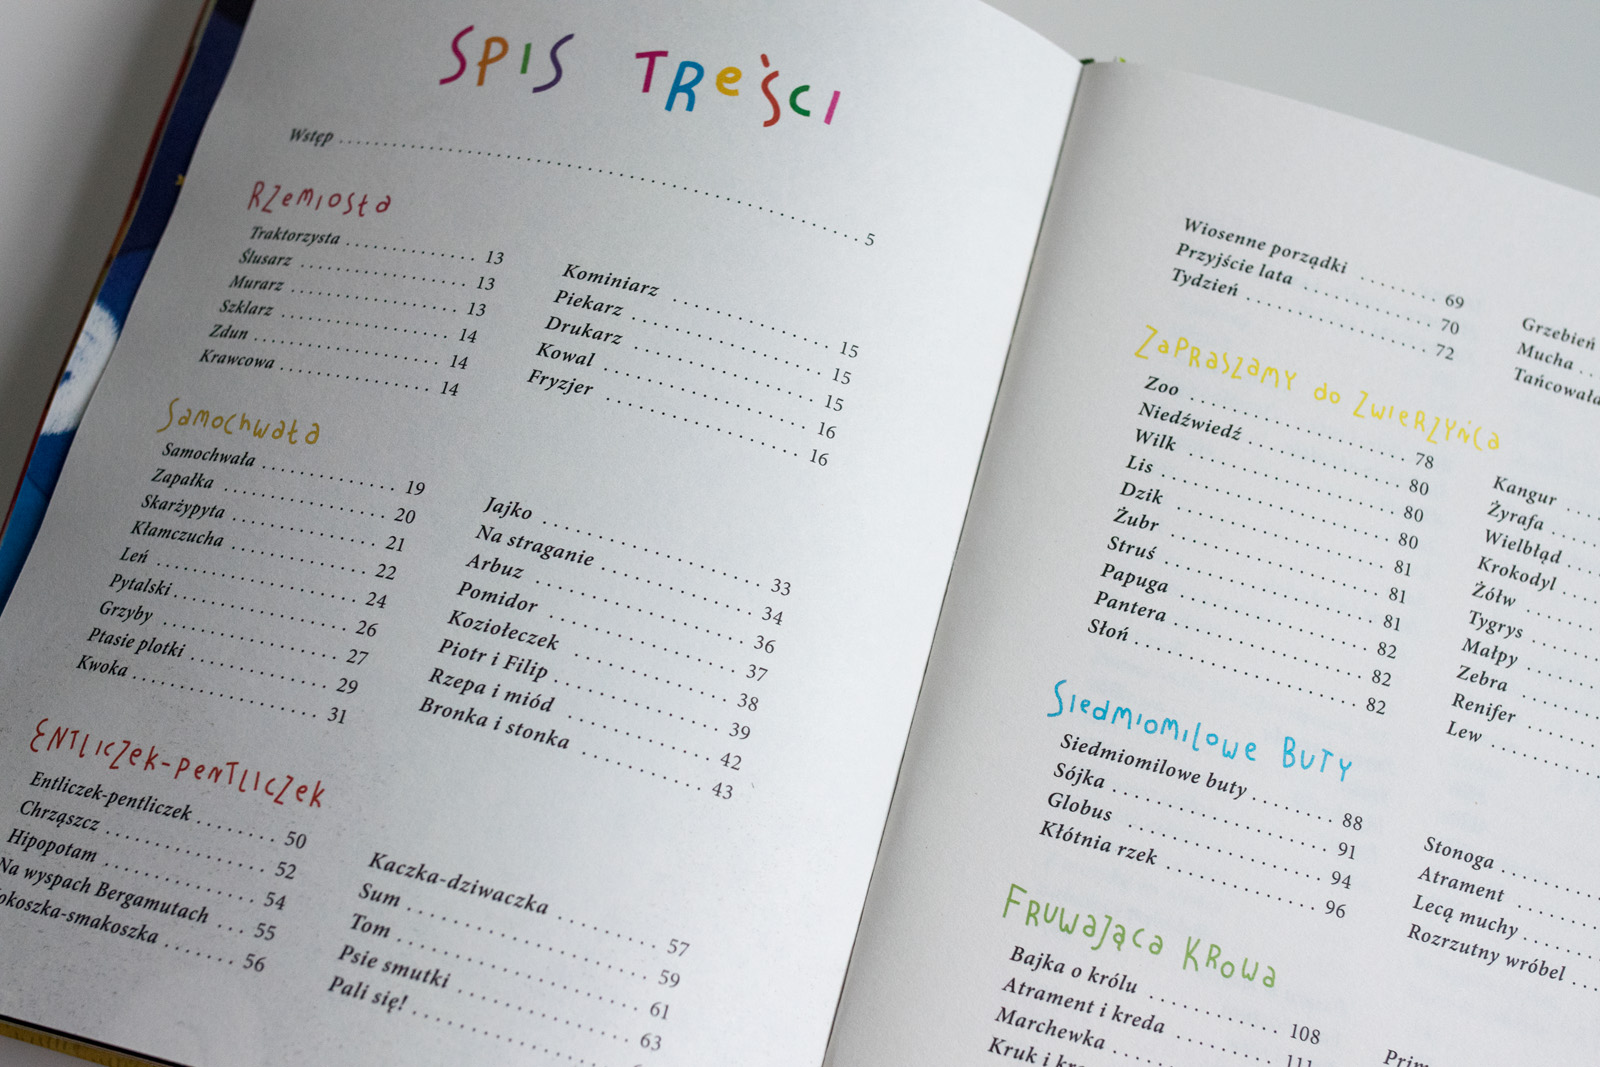 SPIS TREŚCI
Wstęp 5
Rzemiosła
Traktorzysta 13
Ślusarz 13
Murarz 13
Szklarz 14
Zdun 14
Krawcowa 14
Kominiarz 15
Piekarz 15
Drukarz 15
Kowal 16
Fryzjer 16
Samochwała
Samochwała 19
Zapałka 20
Skarżypyta 21
Kłamczucha 22
Leń 24
Pytalski 26
Grzyby 27
Ptasie plotki 29
Kwoka 31
Jajko 33
Na straganie 34
Arbuz 36
Pomidor 37
Koziołeczek 38
Piotr i Filip 39
Rzepa i miód 42
Bronka i stonka 43
Entliczek-pentliczek
Entliczek-pentliczek 50
Chrząszcz 52
Hipopotam 54
Na wyspach Bergamutach 55
okoszka-smakoszka 56
Kaczka-dziwaczka 57
Sum 59
Tom 61
Psie smutki 63
Pali się!
Wiosenne porządki 69
Przyjście lata 70
Tydzień 72
Grzebień
Mucha
Tańcowała
Zapraszamy do zwierzyńca
Zoo 78
Niedźwiedź 80
Wilk 80
Lis 80
Dzik 81
Żubr 81
Struś 81
Papuga 82
Pantera 82
Słoń 82
Kangur
Żyrafa
Wielbłąd
Krokodyl
Żółw
Tygrys
Małpy
Zebra
Renifer
Lew
Siedmiomilowe buty
Siedmiomilowe buty 88
Sójka 91
Globus 94
Kłótnia rzek 96
Stonoga
Atrament
Lecą muchy
Rozrzutny wróbel
Fruwająca krowa
Bajka o królu 108
Atrament i kreda 111
Marchewka
Kruk i